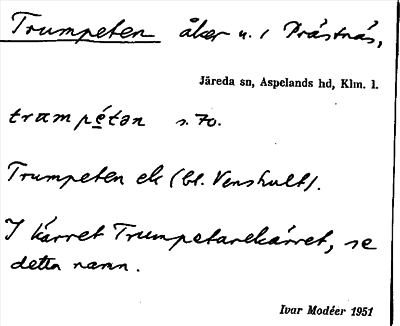 Trumpeten åker u. i Prästnäs,
Järeda sn, Aspelands hd, Klm. l.
trumpétən s. 70.
Trumpeten ek (bl. Venshult).
I kärret Trumpetarekärret, se
detta namn.
Ivar Modéer 1951